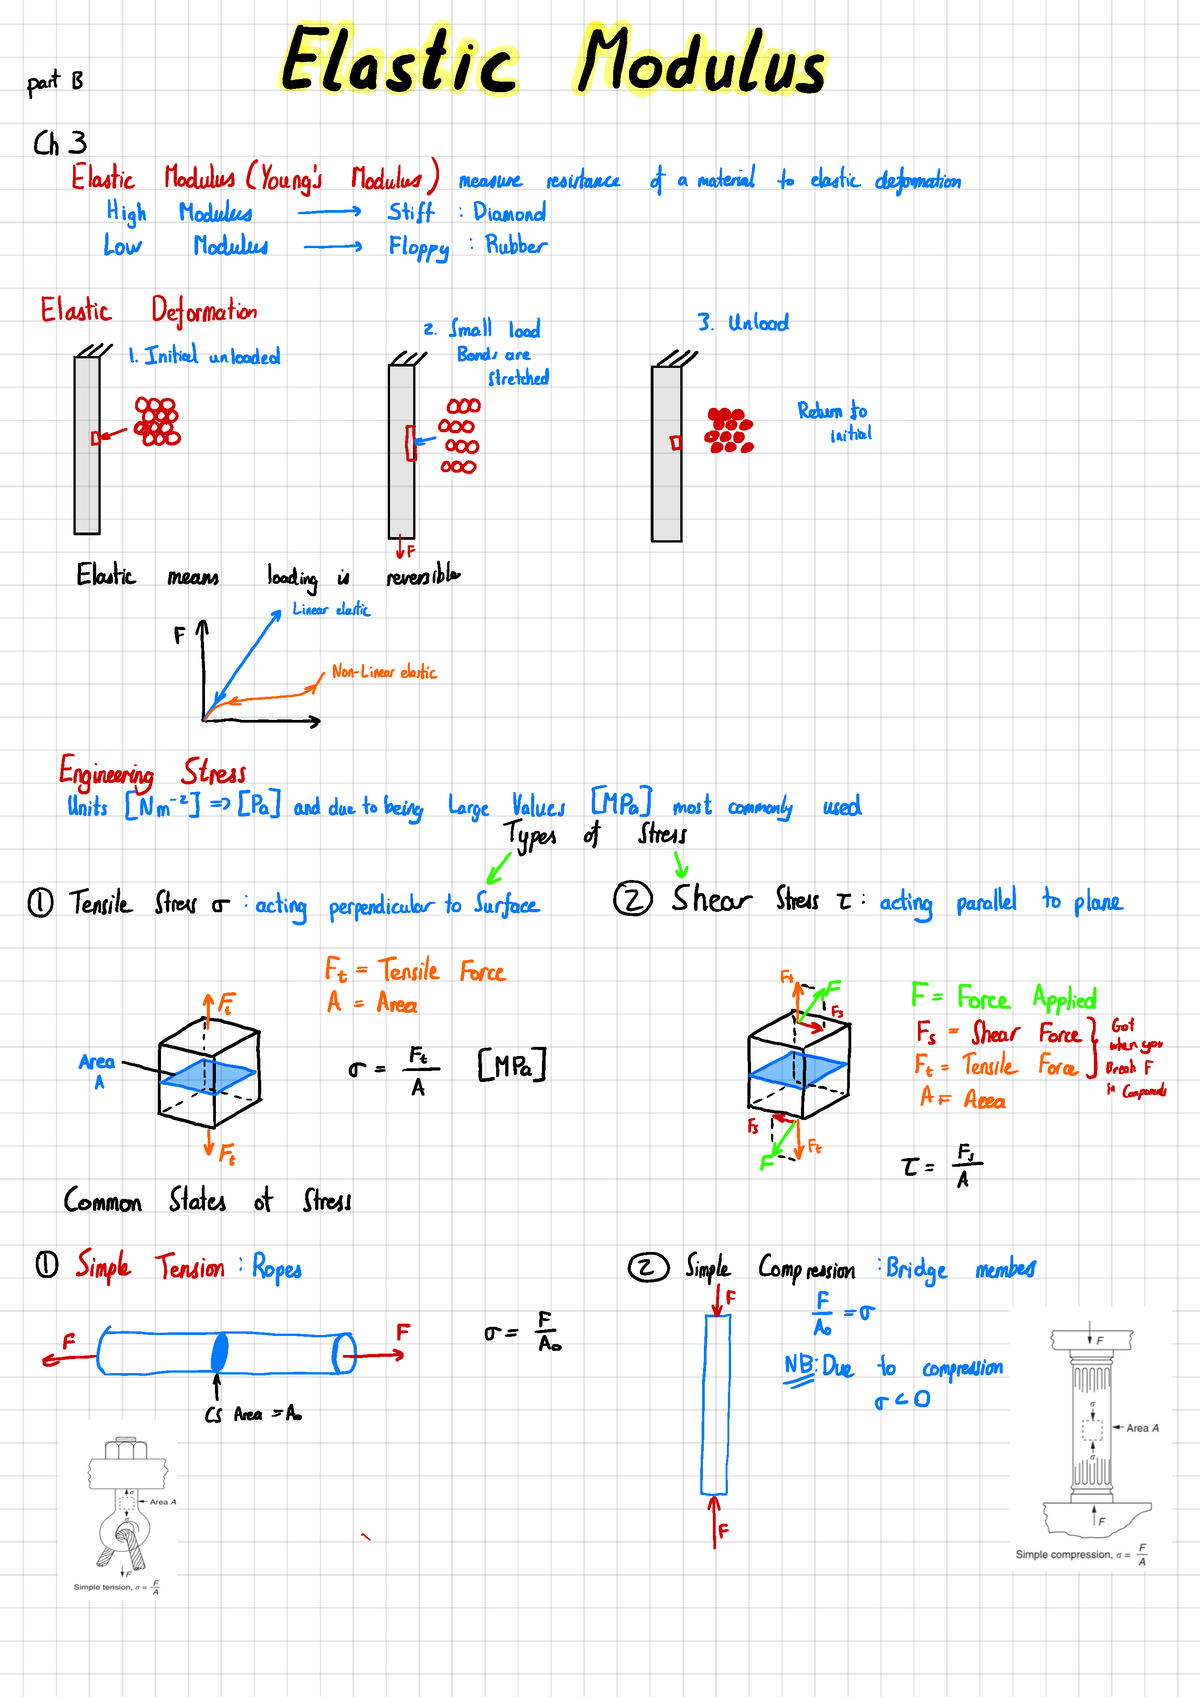 Elastic Modulus
part B
Ch 3
Elastic Modulus (Young's Modulus) measure resistance of a material to elastic deformation
High Modulus → Stiff : Diamond
Low Modulus → Floppy : Rubber
Elastic Deformation
1. Initial unloaded
2. Small load
Bonds are
stretched
3. Unload
Return to
initial
F
Elastic means loading is reversible
Linear elastic
F
Non-Linear elastic
Engineering Stress
Units [Nm⁻²] => [Pa] and due to being Large Values [MPa] most commonly used
Types of Stress
① Tensile Stress σ : acting perpendicular to Surface
② Shear Stress τ : acting parallel to plane
Ft = Tensile Force
A = Area
Ft
Area
A
σ = Ft/A [MPa]
Ft
Ft
F
Fs
F = Force Applied
Fs = Shear Force
Ft = Tensile Force
A = Area
Got
when you
Break F
in Components
Fs
Ft
F
τ = Fs/A
Common States of Stress
① Simple Tension : Ropes
F
F
σ = F/A₀
CS Area = A₀
② Simple Compression : Bridge membes
F
F/A₀ = σ
NB: Due to compression
σ < 0
F
σ
Area A
σ
F
Simple tension, σ = F/A
F
σ
Area A
σ
F
Simple compression, σ = F/A